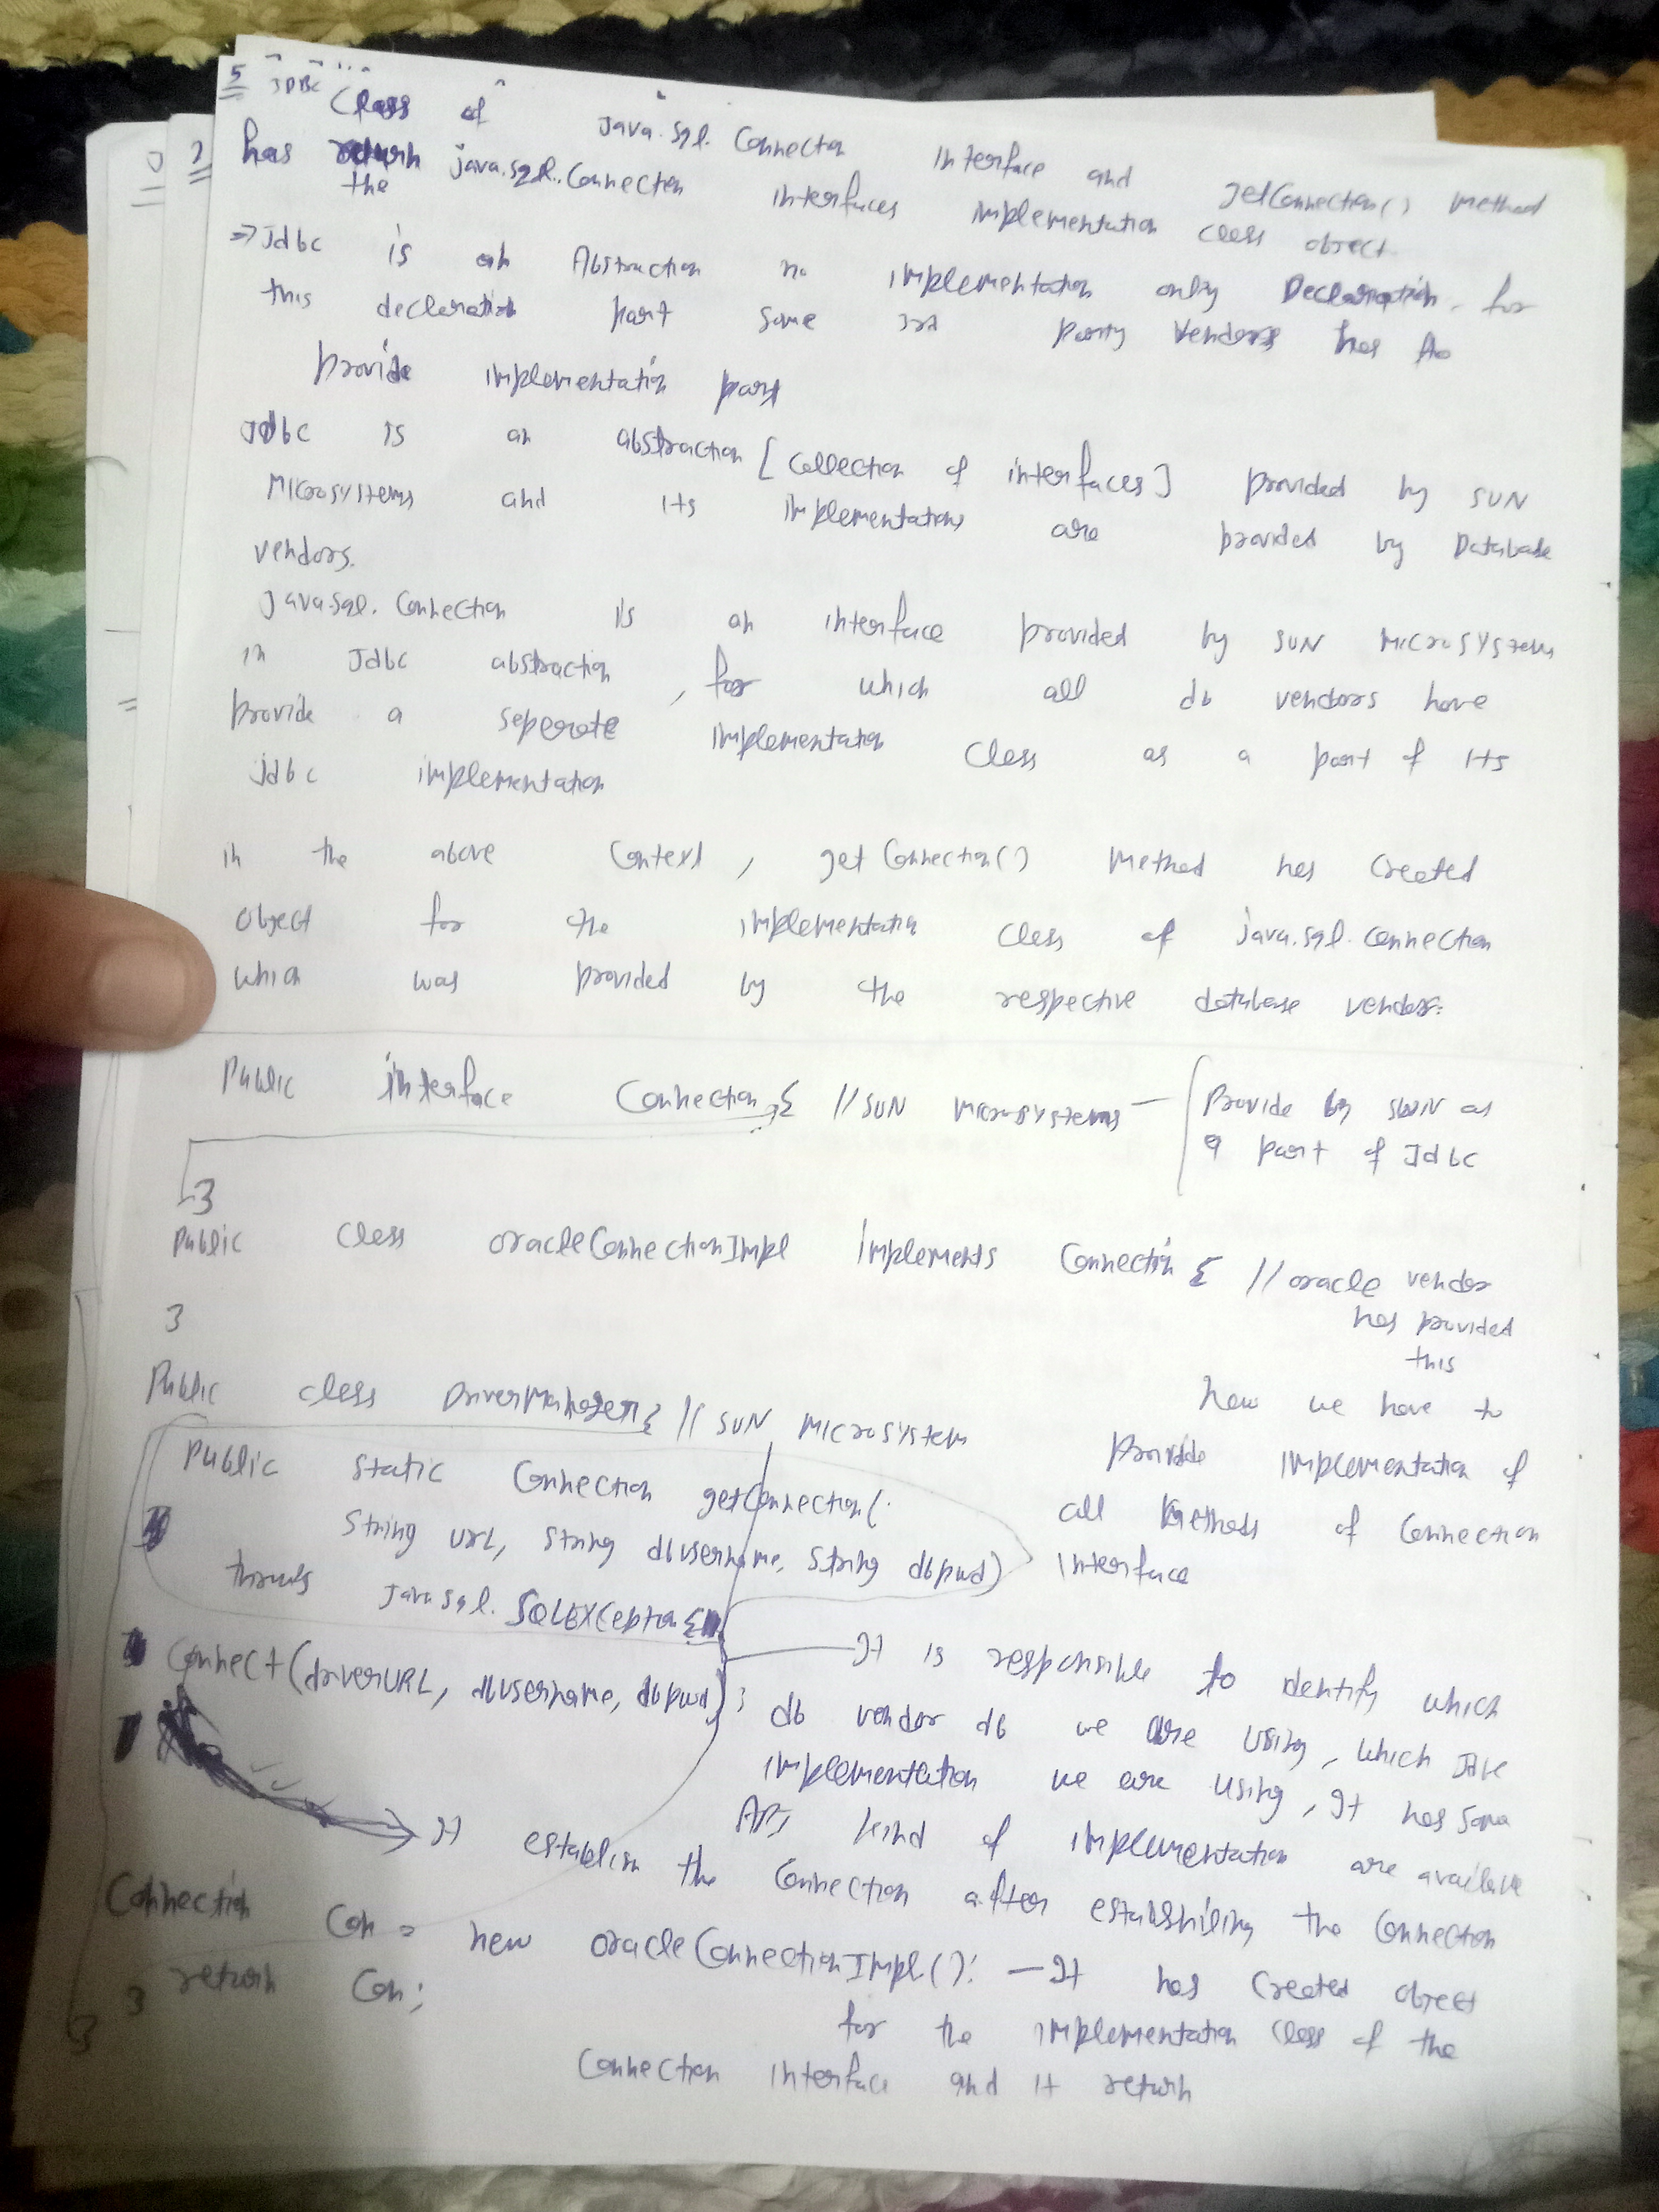 5 JDBC
class of java.sql.Connection interface and getConnection() method
has return java.sql.Connection interfaces implementation class object
the
=> Jdbc is an Abstraction no implementation only Declaration. for
this declaration part some 3rd party vendors has to
provide implementation part
Jdbc is an abstraction [collection of interfaces] provided by SUN
Microsystems and its implementations are provided by Database
vendors.
java.sql.Connection is an interface provided by SUN Microsystems
in Jdbc abstraction, for which all db vendors have
provide a seperate implementation class as a part of its
jdbc implementation
in the above context, getConnection() method has created
object for the implementation class of java.sql.connection
which was provided by the respective database vendors.
Public interface Connection { // SUN Microsystems — Provide by SUN as
a part of Jdbc
}
public class oracleConnectionImpl implements Connection { // oracle vendor
has provided
this
}
Public class DriverManager { // SUN Microsystem
how we have to
provide implementation of
all methods of Connection
interface
Public static Connection getConnection(
String URL, String dbusername, String dbpwd)
throws java.sql.SQLException {
Connect(driverURL, dbusername, dbpwd);
It is responsible to identify which
db vendor db we are using, which
implementation we are using, It has some
API, kind of implementation are available
It establish the Connection after establishing the Connection
Connection con = new oracleConnectionImpl(); — It has created object
for the implementation class of the
Connection interface and it return
return con;
}
}